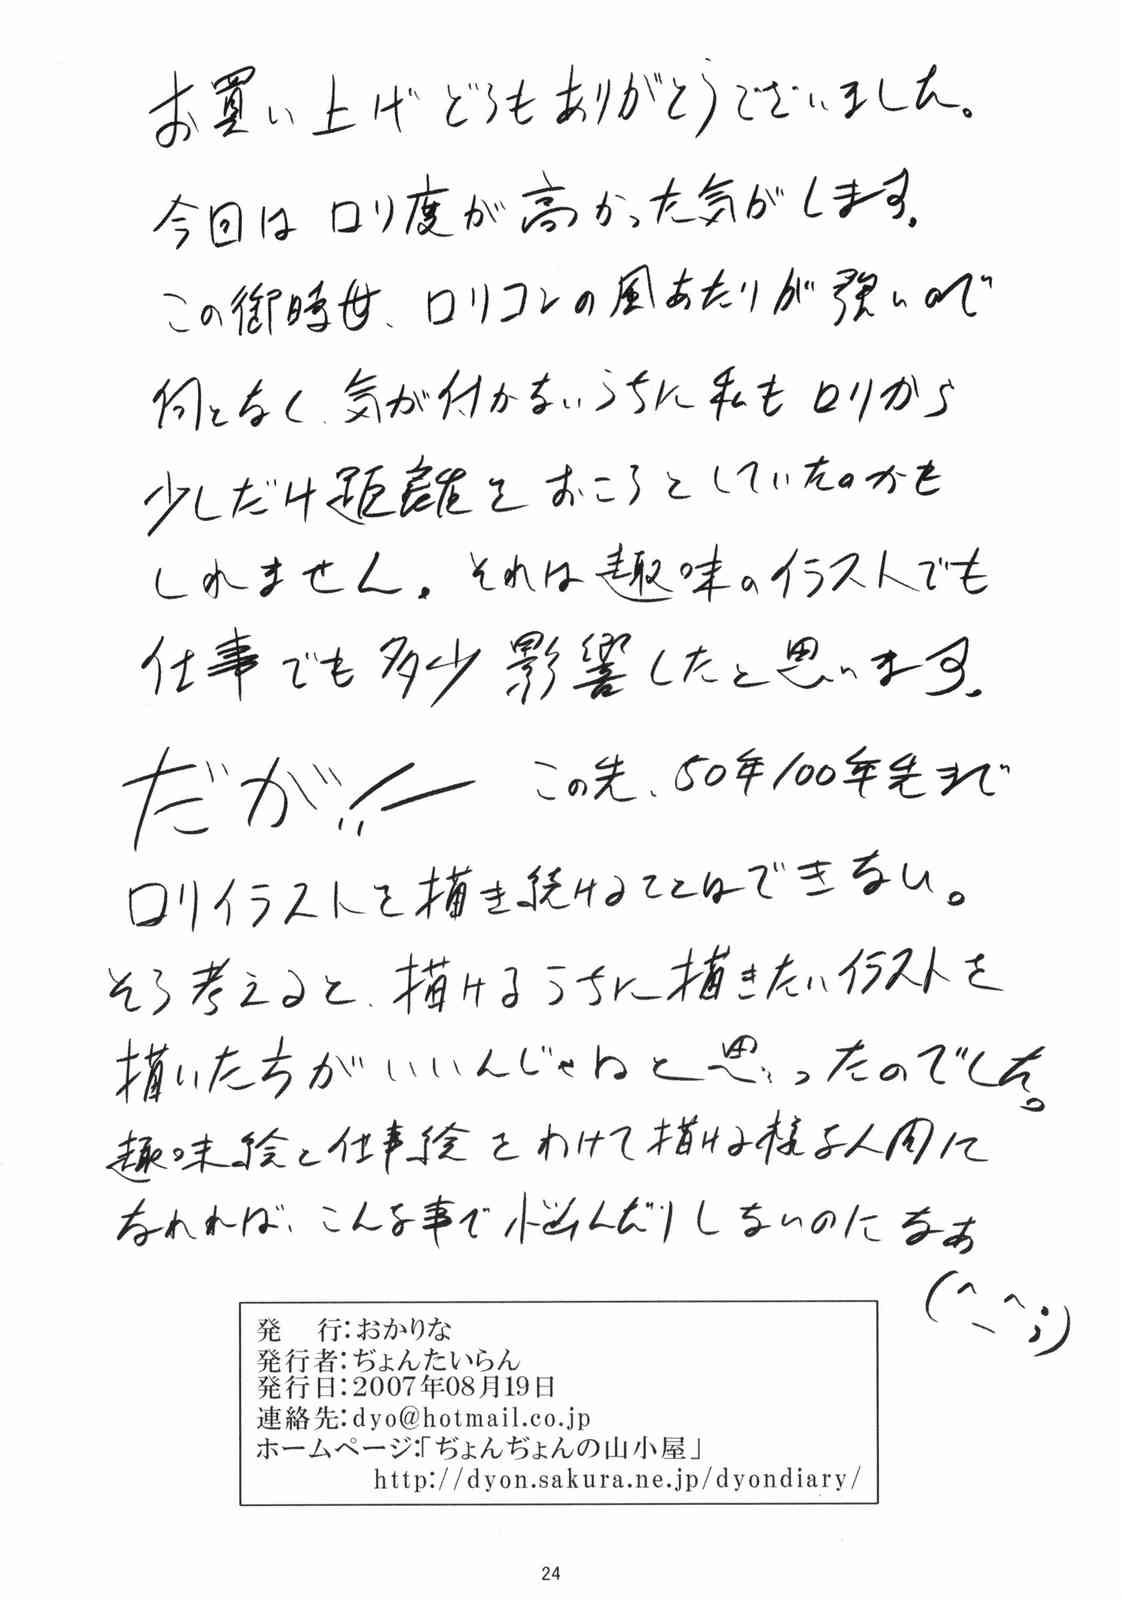 お買い上げどうもありがとうございました。
今回はロリ度が高かった気がします。
この御時世、ロリコンの風あたりが強いので
何となく、気が付かないうちに私もロリから
少しだけ距離をおこうとしていたのかも
しれません。それは趣味のイラストでも
仕事でも多少影響したと思います。
だが!! この先、50年100年先まで
ロリイラストを描き続けることはできない。
そう考えると、描けるうちに描きたいイラストを
描いたちがいいんじゃねと思ったのでした。
趣味絵と仕事絵をわけて描ける様な人間に
なれれば、こんな事で悩んだりしないのになぁ
(^_^;)
発　行:おかりな
発行者:ぢょんたいらん
発行日:2007年08月19日
連絡先:dyo@hotmail.co.jp
ホームページ:「ぢょんぢょんの山小屋」
http://dyon.sakura.ne.jp/dyondiary/
24